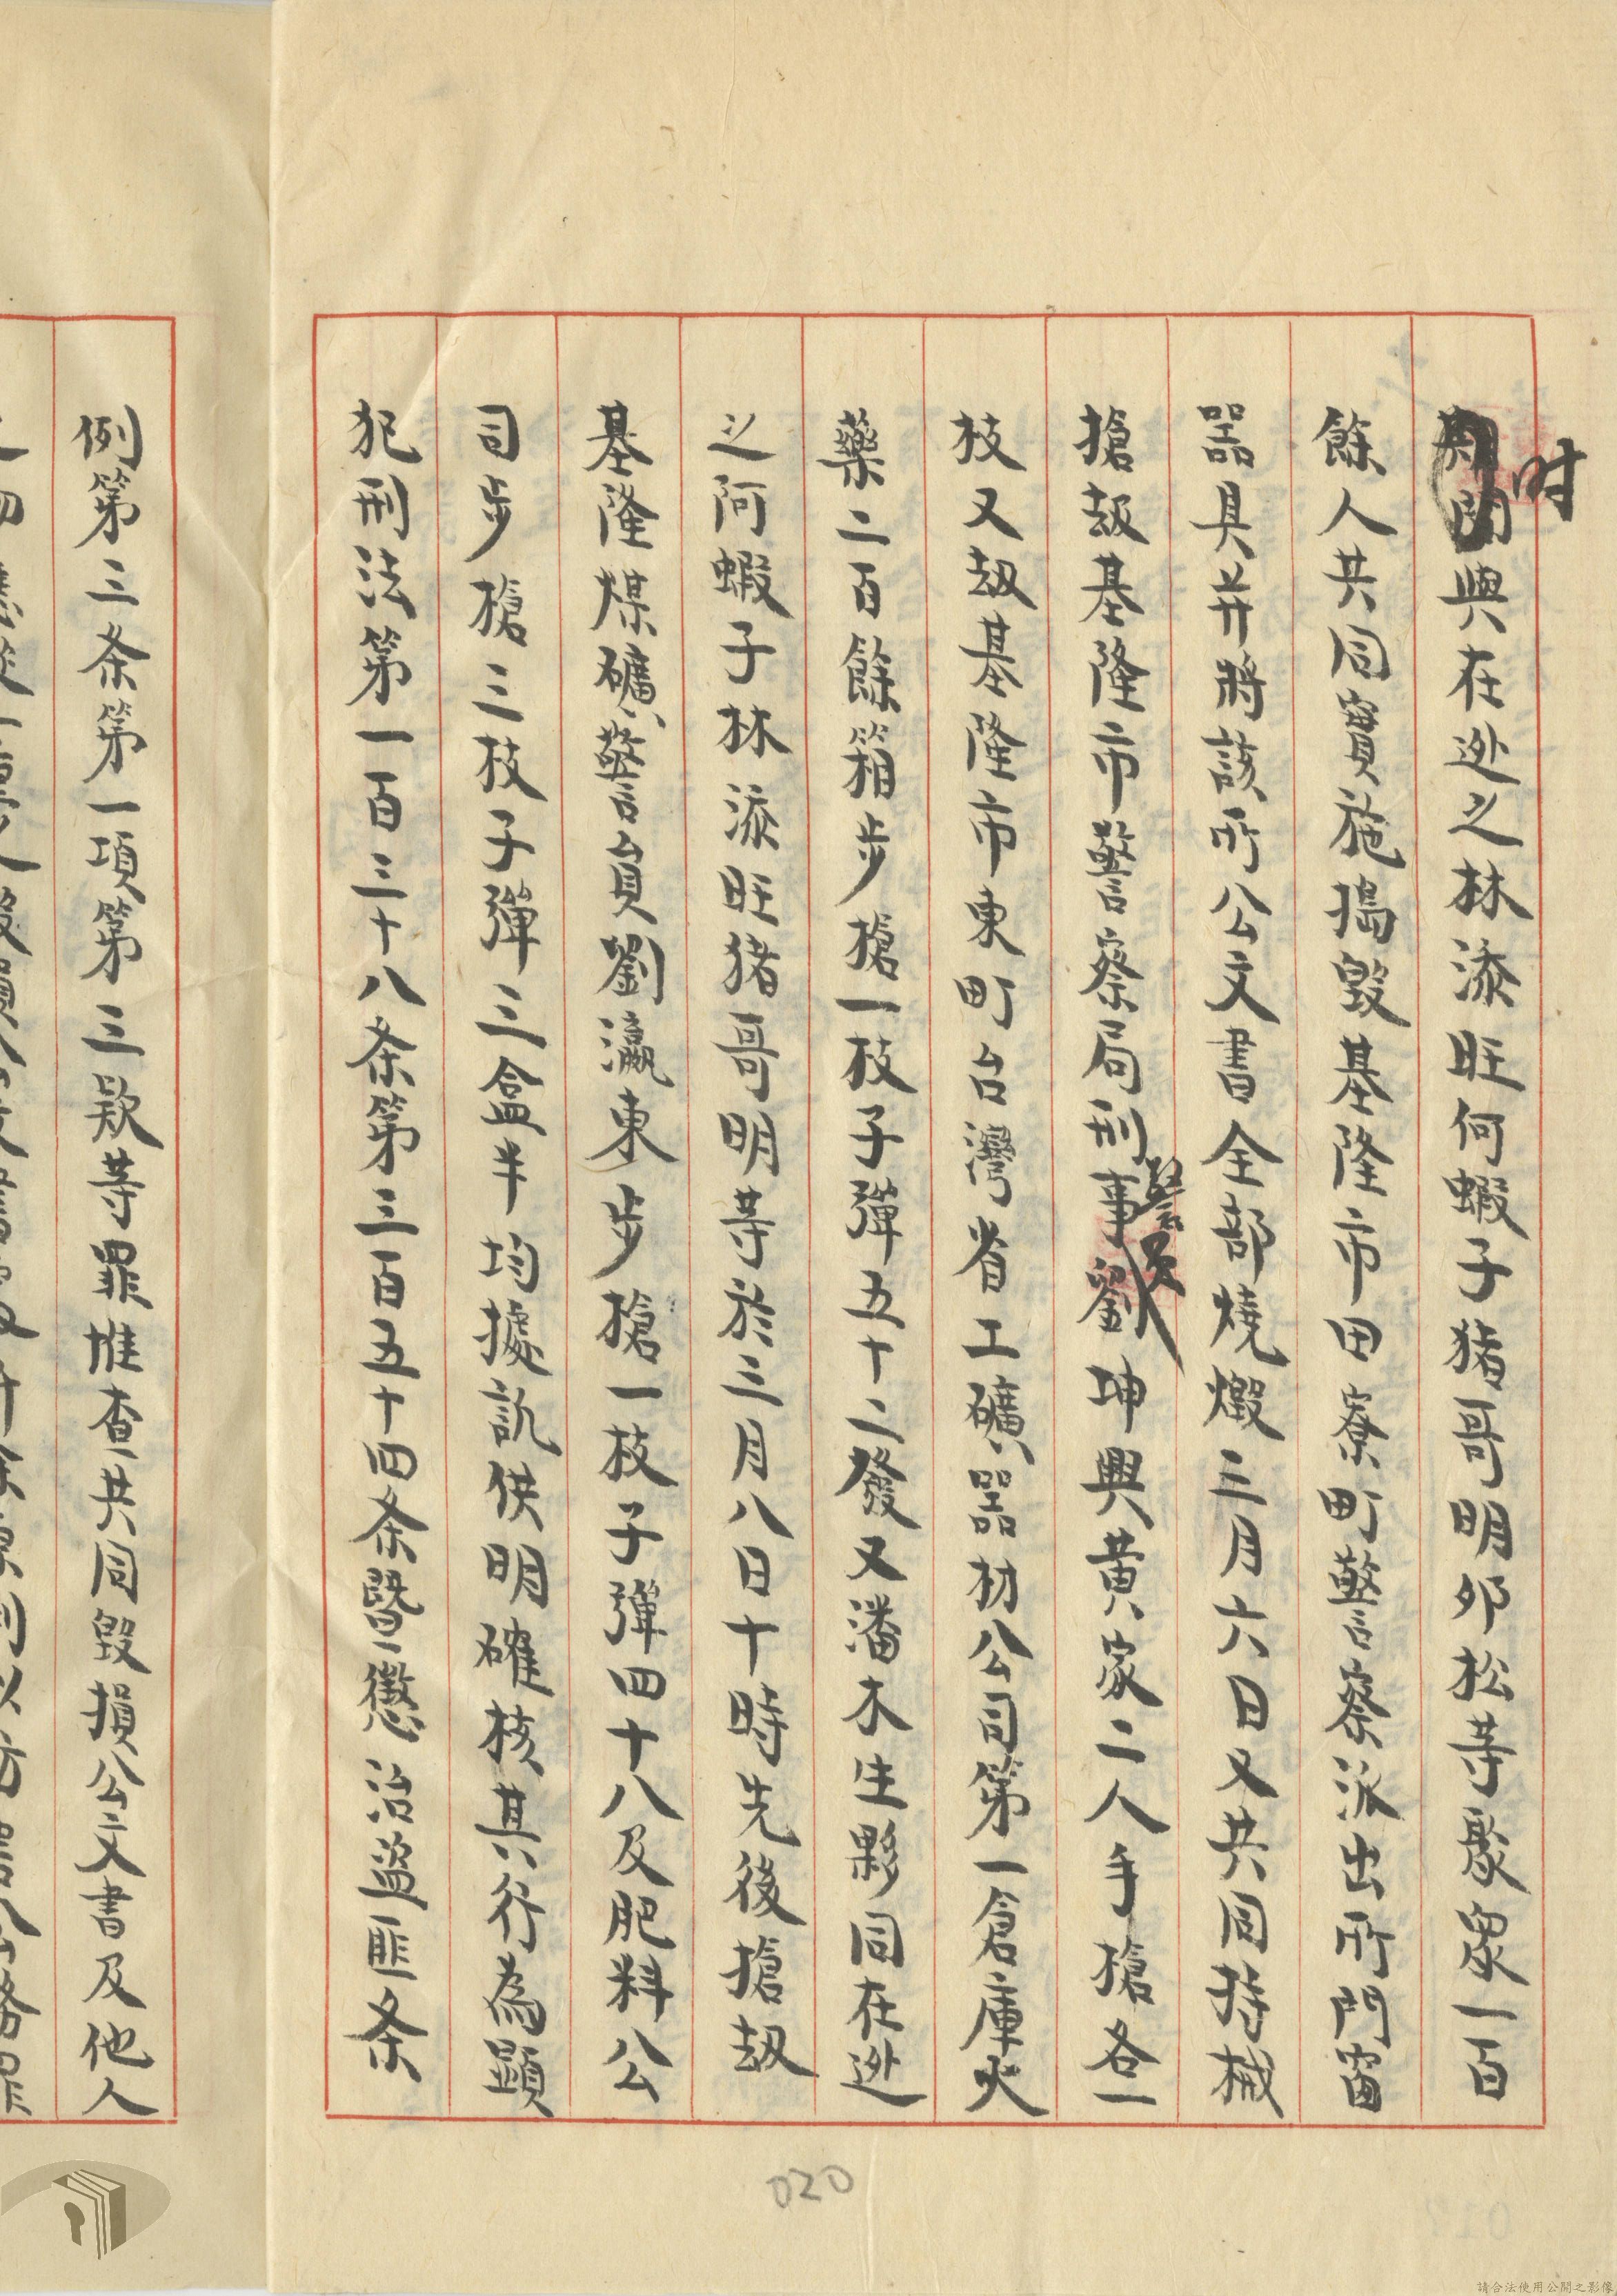 时
期間與在逃之林添旺何蝦子猪哥明邱松等聚眾一百
餘人共同實施搗毀基隆市田寮町警察派出所門窗
器具并將該所公文書全部燒燬三月六日又共同持械
搶刼基隆市警察局刑事劉坤興黃家二人手槍各一
警員
枝又刼基隆市東町台灣省工礦器材公司第一倉庫火
藥二百餘箱步槍一枝子彈五十二發又潘木生夥同在逃
之阿蝦子林添旺猪哥明等於三月八日十時先後搶刼
基隆煤礦警員劉瀛東步槍一枝子彈四十八及肥料公
司步槍三枝子彈三盒半均據訊供明確核其行為顯
犯刑法第一百三十八条第三百五十四条暨懲治盜匪条
例第三条第一項第三欵等罪惟查共同毀損公文書及他人
020
請合法使用公開之影像